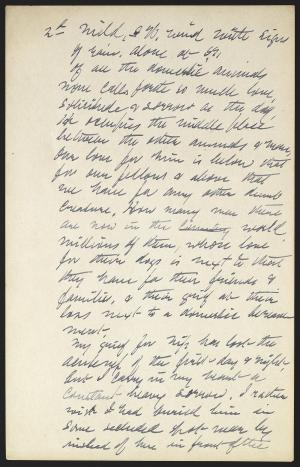 2d Mild, S.W. wind with signs
of rain. Alone at 69,
Of all the domestic animals
none calls forth so much love,
solicitude & sorrow as the dog,
He occupies the middle place
between the other animals & man,
Our love for him is below that
for our fellows & above that
we have for any other dumb
creature. How many men there
are now in the world
millions of them, whose love
for their dogs is next to that
they have for their friends &
families, & their grief at their
loss next to a domestic bereave
ment.
My grief for Nig has lost the
acuteness of the first day & night,
but I carry in my heart a
constant heavy sorrow. I rather
wish I had buried him in
some secluded spot near by
instead of here in front of the